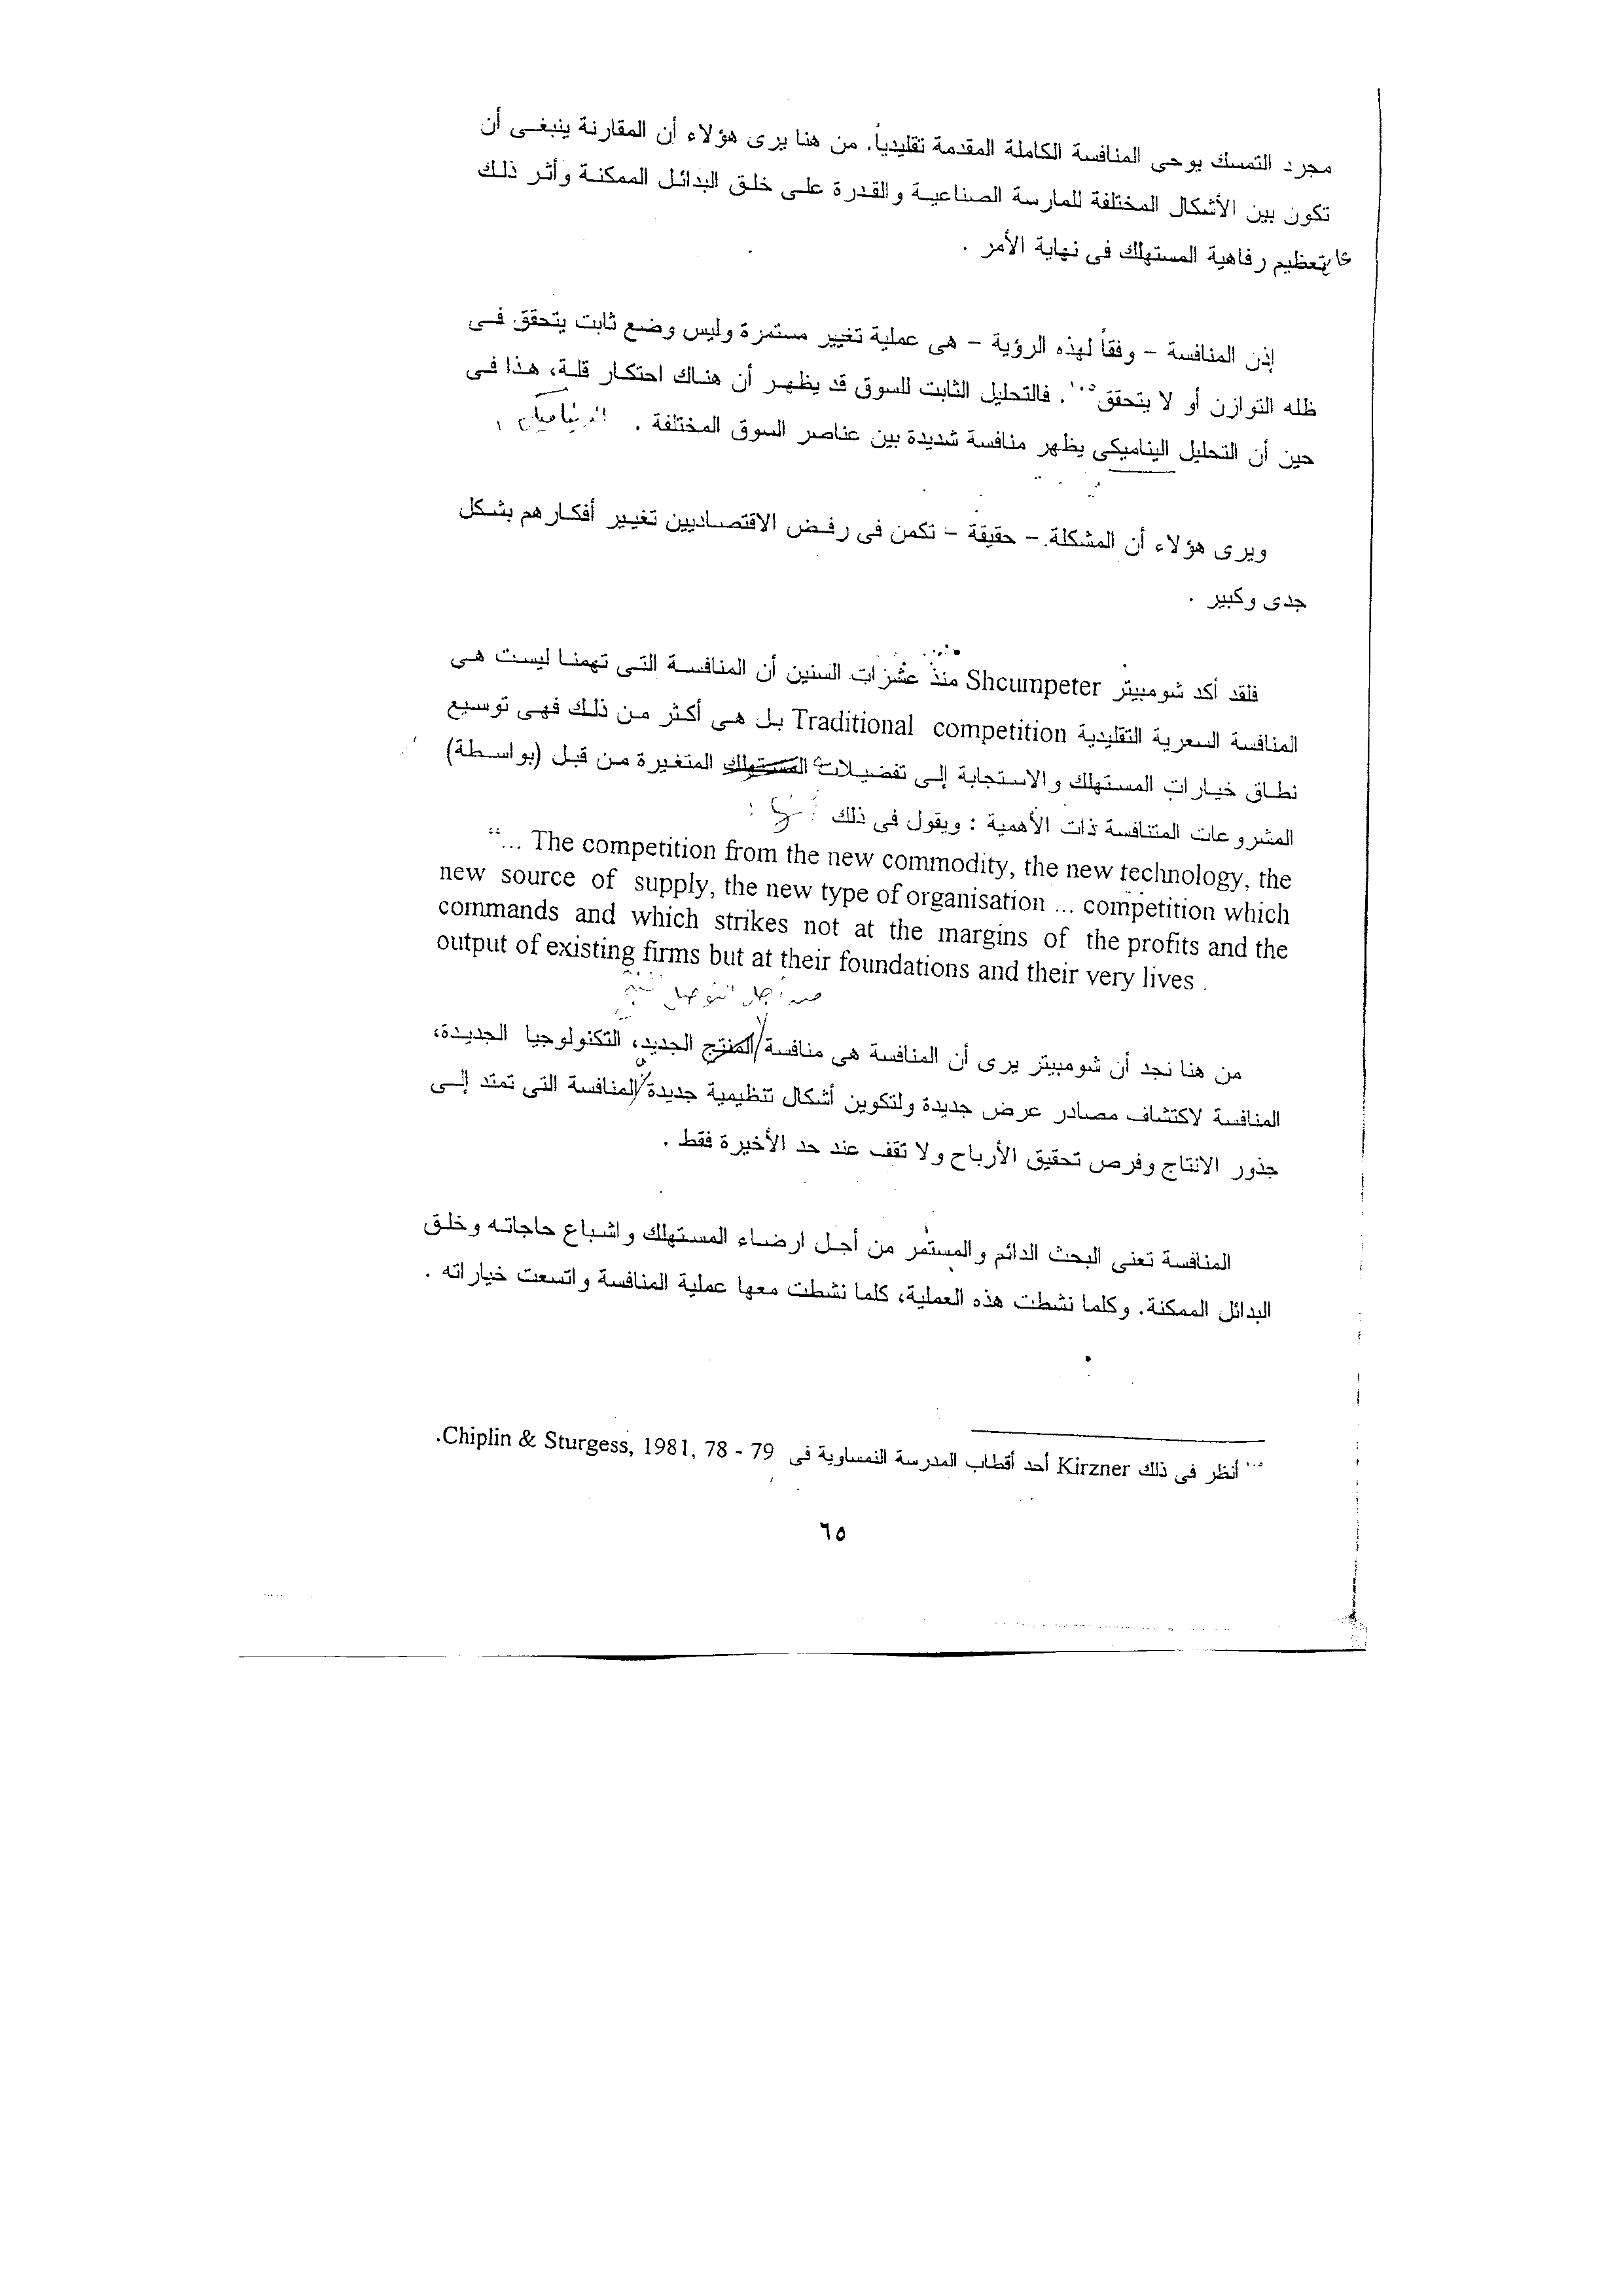 مجرد التمسك بوحى المنافسة الكاملة المقدمة تقليدياً. من هنا يرى هؤلاء أن المقارنة ينبغى أن
تكون بين الأشكال المختلفة للمارسة الصناعية والقدرة على خلق البدائل الممكنة وأثر ذلك
تعظيم رفاهية المستهلك فى نهاية الأمر .
إذن المنافسة - وفقاً لهذه الرؤية - هى عملية تغيير مستمرة وليس وضع ثابت يتحقق فى
ظله التوازن أو لا يتحقق١٠٥. فالتحليل الثابت للسوق قد يظهر أن هناك احتكار قلة، هذا فى
حين أن التحليل اليناميكى يظهر منافسة شديدة بين عناصر السوق المختلفة . الديناميكى
ويرى هؤلاء أن المشكلة - حقيقة - تكمن فى رفض الاقتصاديين تغيير أفكارهم بشكل
جدى وكبير .
فلقد أكد شومبيتر Shcumpeter منذ عشرات السنين أن المنافسة التى تهمنا ليست هى
المنافسة السعرية التقليدية Traditional competition بل هى أكثر من ذلك فهى توسيع
نطاق خيارات المستهلك والاستجابة إلى تفضيلات المستهلك المتغيرة من قبل (بواسطة)
المشروعات المتنافسة ذات الأهمية : ويقول فى ذلك
“... The competition from the new commodity, the new technology, the
new source of supply, the new type of organisation ... competition which
commands and which strikes not at the margins of the profits and the
output of existing firms but at their foundations and their very lives .
من أجل التوصل
من هنا نجد أن شومبيتر يرى أن المنافسة هى منافسة المنتج الجديد، التكنولوجيا الجديدة،
المنافسة لاكتشاف مصادر عرض جديدة ولتكوين أشكال تنظيمية جديدة المنافسة التى تمتد إلى
جذور الانتاج وفرص تحقيق الأرباح ولا تقف عند حد الأخيرة فقط .
المنافسة تعنى البحث الدائم والمستمر من أجل ارضاء المستهلك واشباع حاجاته وخلق
البدائل الممكنة. وكلما نشطت هذه العملية، كلما نشطت معها عملية المنافسة واتسعت خياراته .
١٠٥ أنظر فى ذلك Kirzner أحد أقطاب المدرسة النمساوية فى Chiplin & Sturgess, 1981, 78 - 79.
٦٥